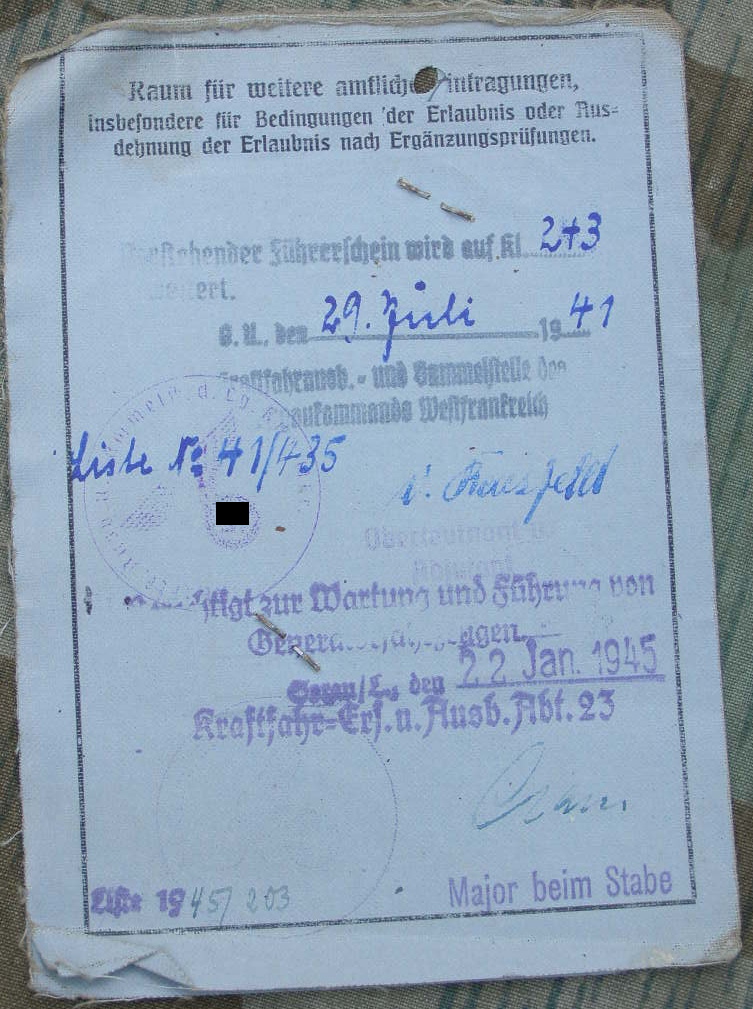 Raum für weitere amtliche Eintragungen,
insbesondere für Bedingungen der Erlaubnis oder Aus-
dehnung der Erlaubnis nach Ergänzungsprüfungen.
Vorstehender Führerschein wird auf Kl. 2+3
O. U., den 29. Juli 1941
Kraftfahrausb.- und Sammelstelle des
Westfrankreich
Liste No 41/435
Oberleutnant u.
Adjutant
zur Wartung und Führung von
den 22. Jan. 1945
Kraftfahr-Ers. u. Ausb. Abt. 23
Liste 1945/203
Major beim Stabe